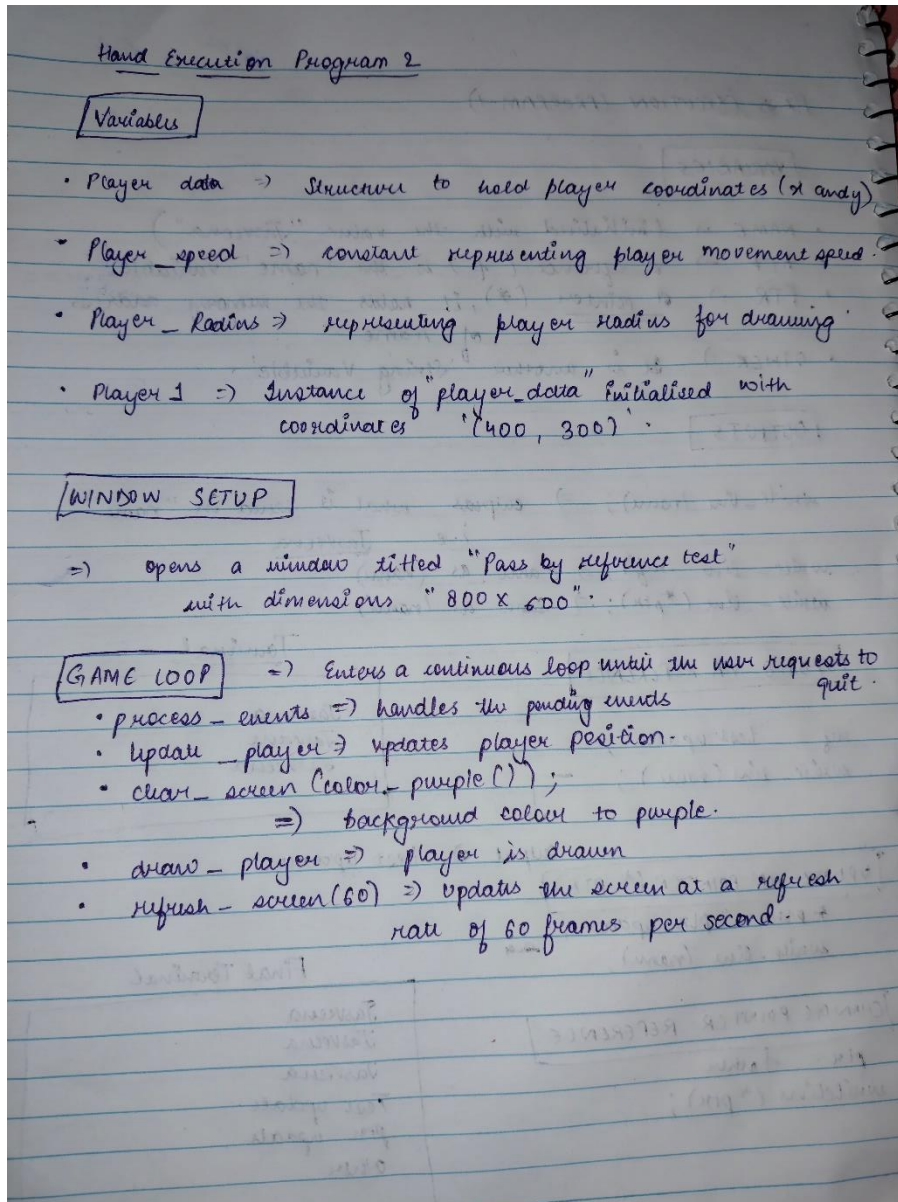 Hand Execution Program 2
Variables
• Player data => Structure to hold player coordinates (x and y)
• Player_speed => constant representing player movement speed.
• Player_Radius => representing player radius for drawing
• Player 1 => Instance of "player_data" initialised with
coordinates '(400, 300)'.
WINDOW SETUP
=> opens a window titled "Pass by reference test"
with dimensions "800 x 600".
GAME LOOP => Enters a continuous loop until the user requests to
quit.
• process_events => handles the pending events
• Update_player => updates player position.
• clear_screen (color_purple());
=> background colour to purple.
• draw_player => player is drawn
• refresh_screen(60) => updates the screen at a refresh
rate of 60 frames per second.